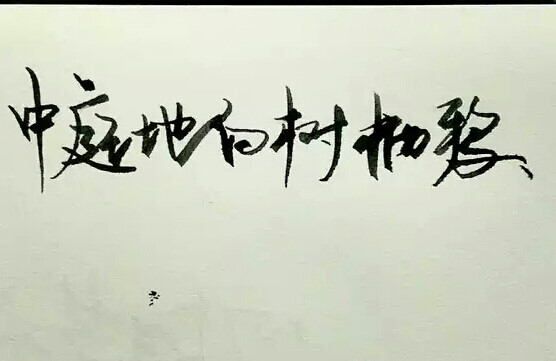 中庭地白树栖鸦